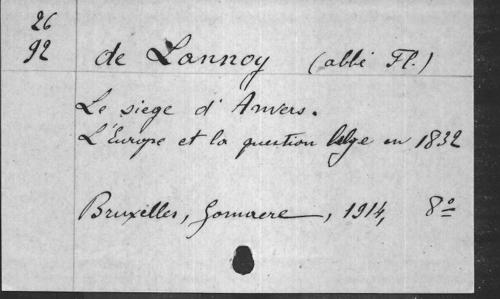 26
92
de Lannoy (abbé Fl.)
Le siege d'Anvers.
L'Europe et la question belge en 1832
Bruxelles, Gomaere, 1914, 8º